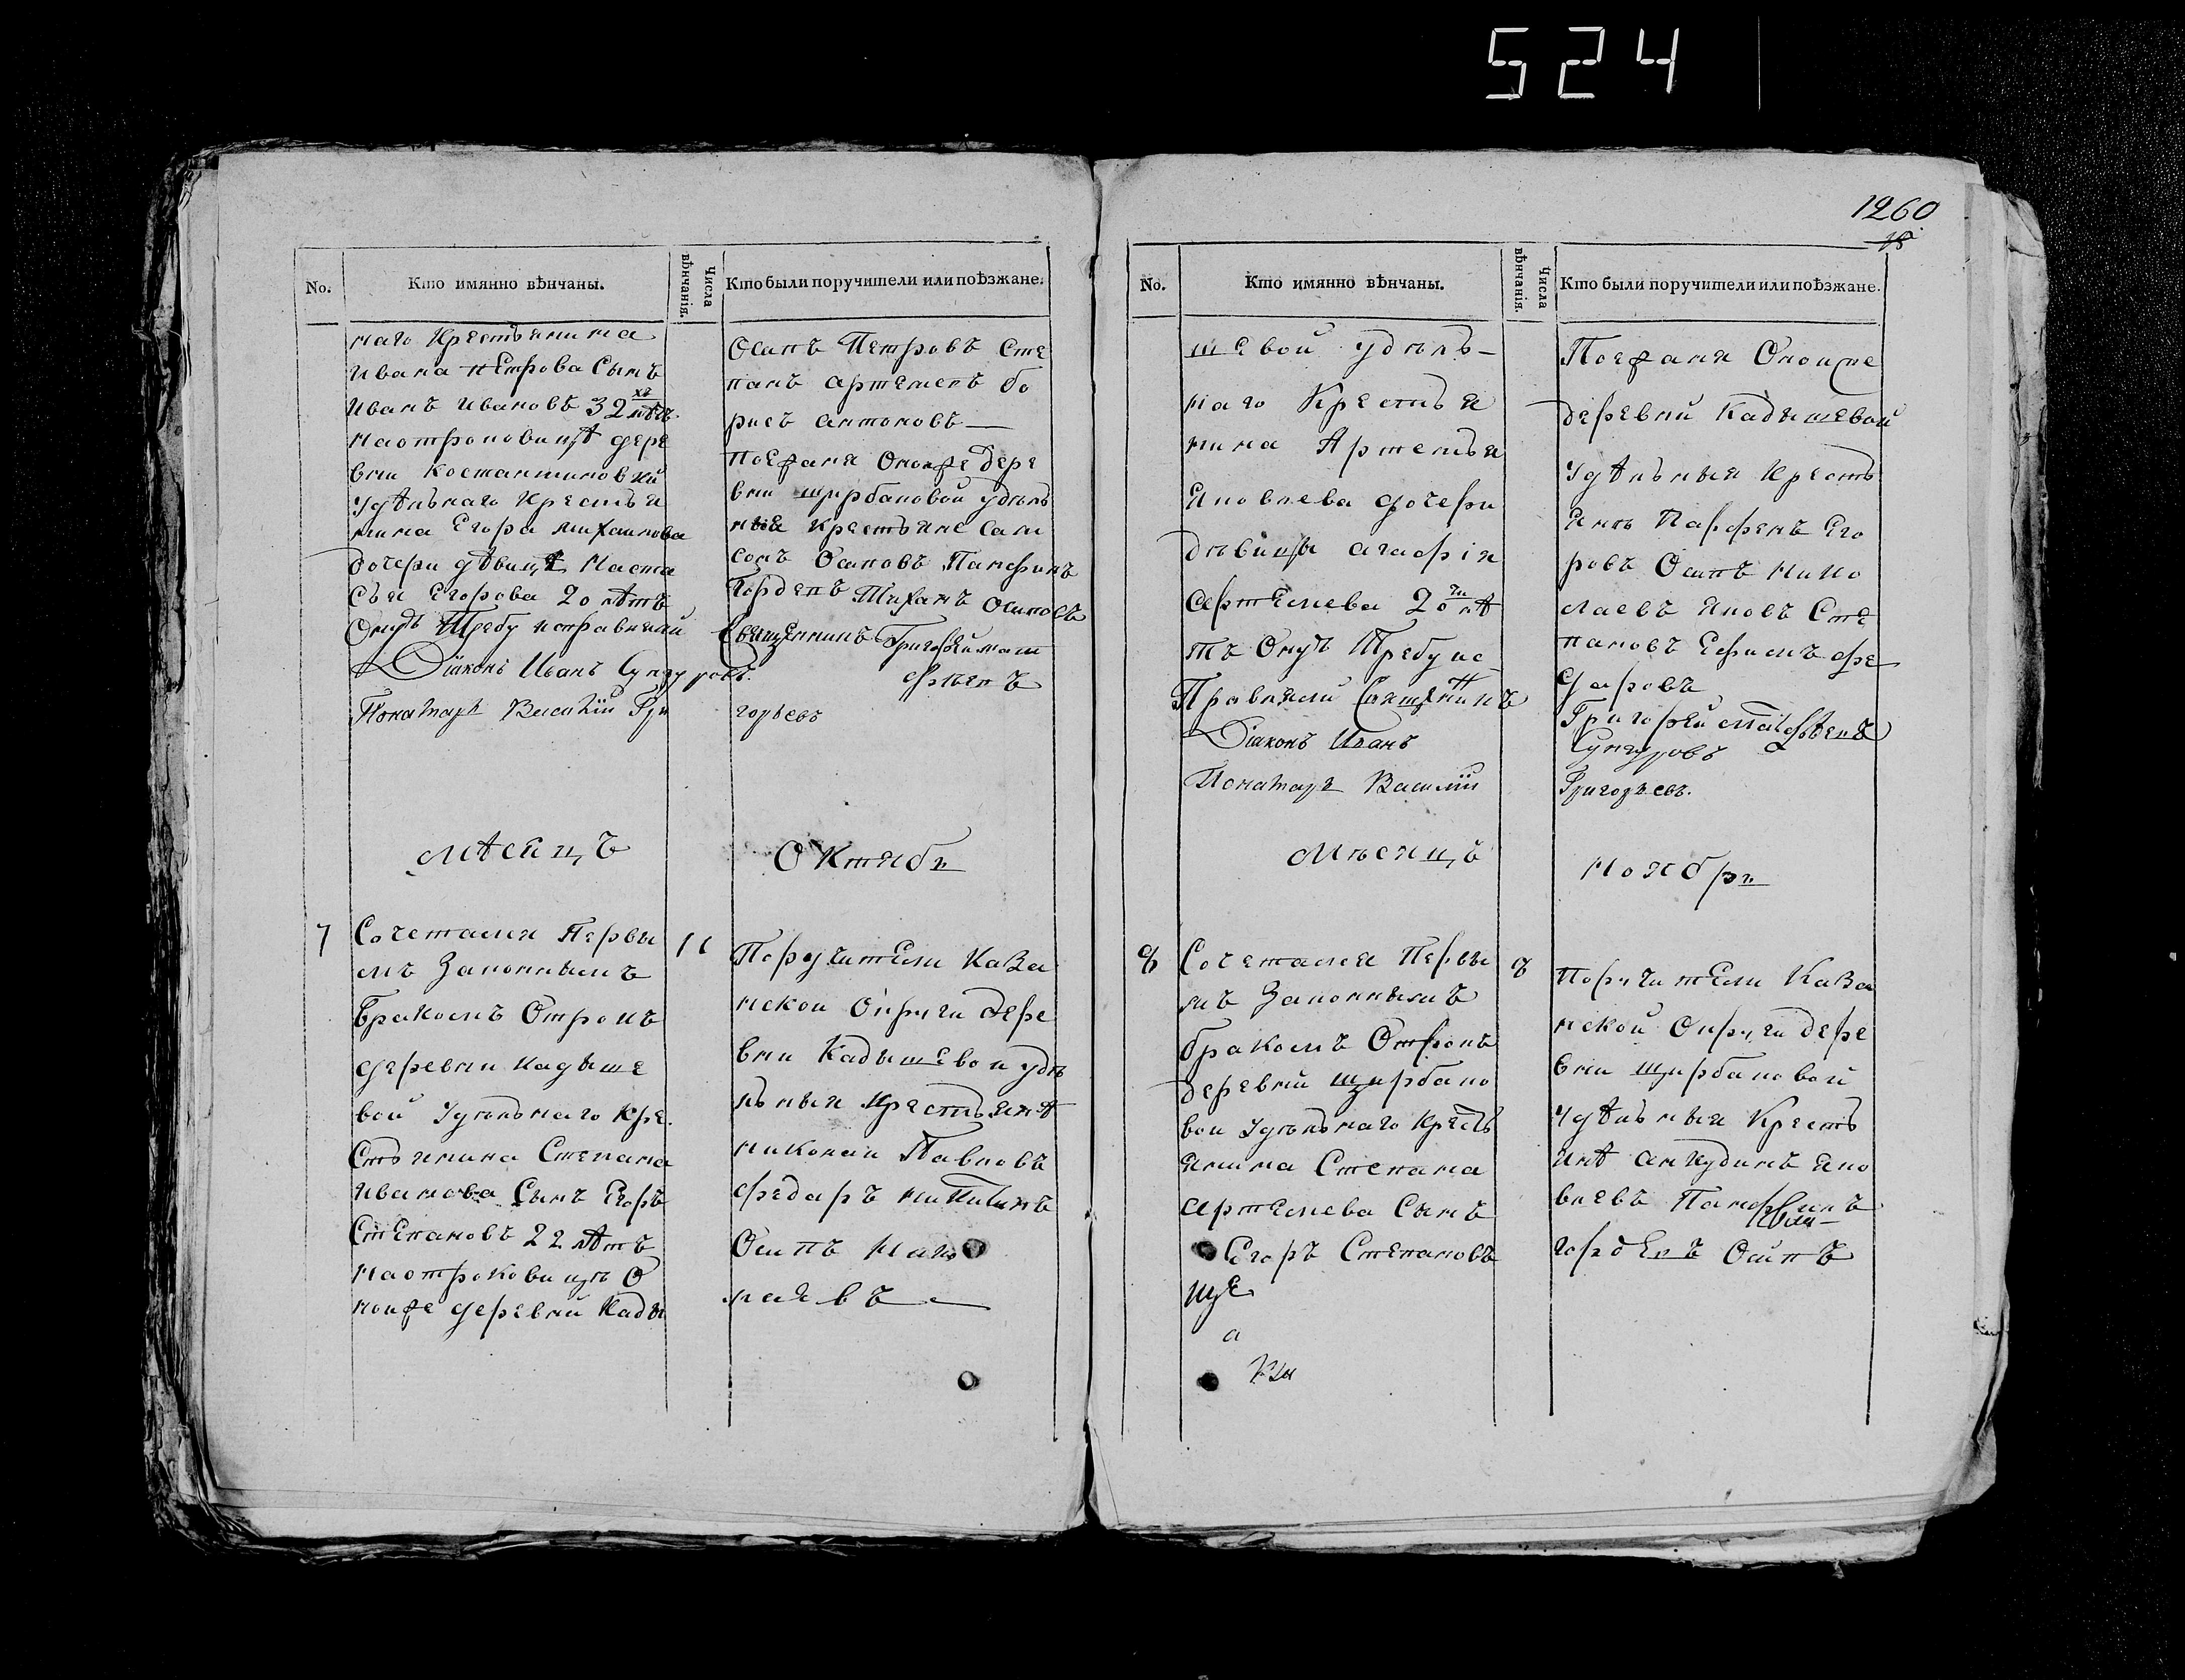 524
1260
No.
Кто имянно вѣнчаны.
Числа вѣнчанія.
Кто были поручители или поѣзжане.
наго Крестьянина
Ивана петрова Сынъ
Иванъ Ивановъ 32 хъ лѣтъ
наотроковицѣ дере
вни Костантиновки
Удѣльнаго Крестья
нина Егора михаилова
дочери дѣвицѣ Наста
сьи Егорова 20 лѣтъ
Онуъ Требу исправляли
Діаконъ Иванъ Сунгуровъ.
Понамарь Василій Гри
Осипъ Петровъ Сте
панъ артемевъ бо
рисъ антоновъ
поезжаня оноизе дере
вни щербаковой удѣль
ныя крестьяне Сам
сонъ Осиповъ Панфилъ
Гордеевъ Тиханъ осиповъ
Священникъ Григорей мат
фѣевъ
горьевъ
мѣсяцъ
Октябрь
7
Сочетался Первы
мъ Законнымъ
Бракомъ Отрокъ
деревни кадыше
вой Удѣльнаго Кре
стьянина Степана
Иванова Сынъ Егоръ
Степановъ 22 лѣтъ
наотроковицѣ о
ноизе деревни Кады
Поручители Каза
нской округи дере
вни Кадышевой удѣ
льныя крестьянѣ
николай Павловъ
федаръ никитинъ
Осипъ Нико
лаевъ
No.
Кто имянно вѣнчаны.
Числа вѣнчанія.
Кто были поручители или поѣзжане.
шевой удѣль-
наго Крестья
нина Артемья
Яковлева дочери
дѣвицы агафія
артемева 20 ти лѣ
тъ Онуъ Требу ис
Правляли Священникъ
Діаконъ Иванъ
Понамарь Василій
Поезжаня Оноизе
деревни Кадышевой
удѣльныя Кресть
янѣ Парфенъ Его
ровъ Осипъ нико
лаевъ яковъ Сте
пановъ Ефимъ фе
даровъ
Григорей Матвѣевъ
Сунгуровъ
Григорьевъ.
Мѣсяцъ
ноябрь
8
Сочетался Первы
мъ Законнымъ
бракомъ Отрокъ
деревни щербако
вои Удѣльнаго Кресть
янина Степана
артемева Сынъ
Егоръ Степановъ
8
поручители Каза
нской Округи дере
вни щербаковой
удѣльныя Кресть
янѣ анкудинъ яко
влевъ Панфилъ
гордеевъ Осипъ